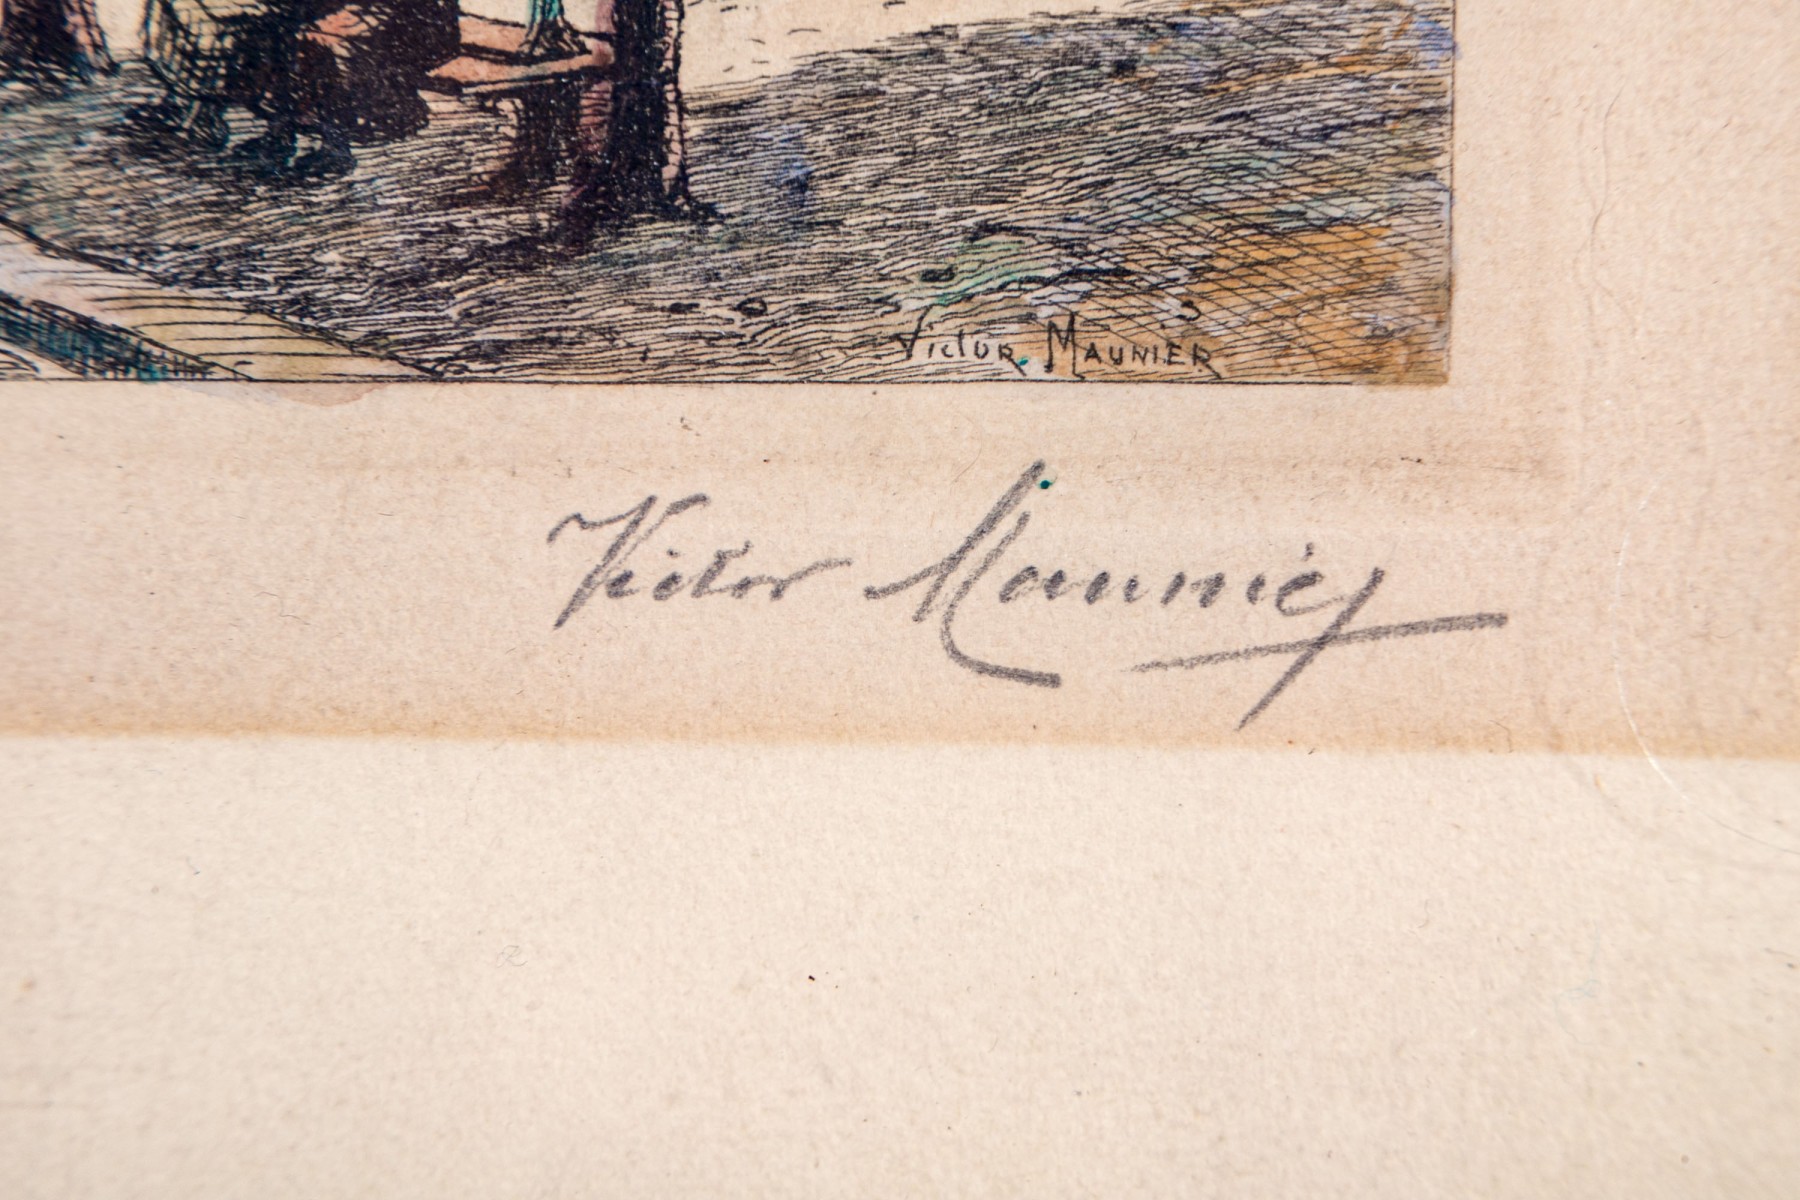 Victor Maunier
Victor Maunier